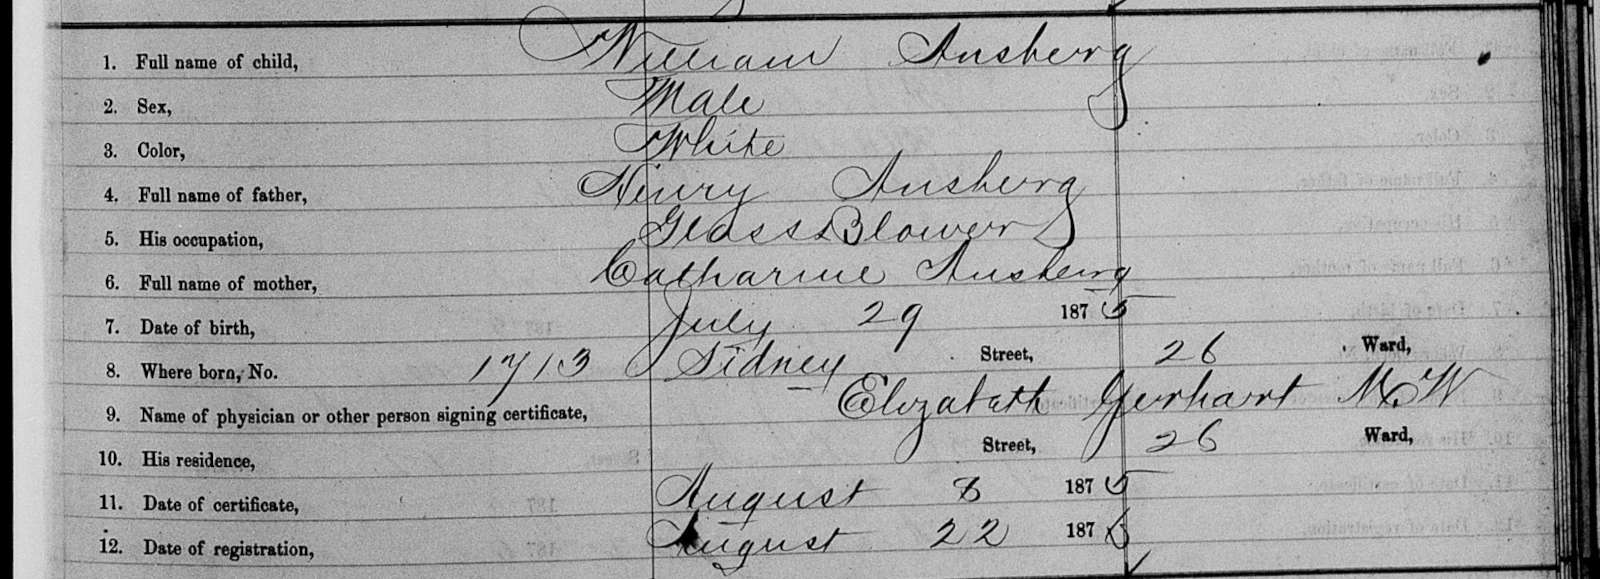 1. Full name of child, William Ansberg
2. Sex, Male
3. Color, White
4. Full name of father, Henry Ansberg
5. His occupation, Glass Blower
6. Full name of mother, Catharine Ansberg
7. Date of birth, July 29 1875
8. Where born, No. 1713 Sidney Street, 26 Ward,
9. Name of physician or other person signing certificate, Elizabeth Gerhart M.W
10. His residence, Street, 26 Ward,
11. Date of certificate, August 8 1875
12. Date of registration, August 22 187